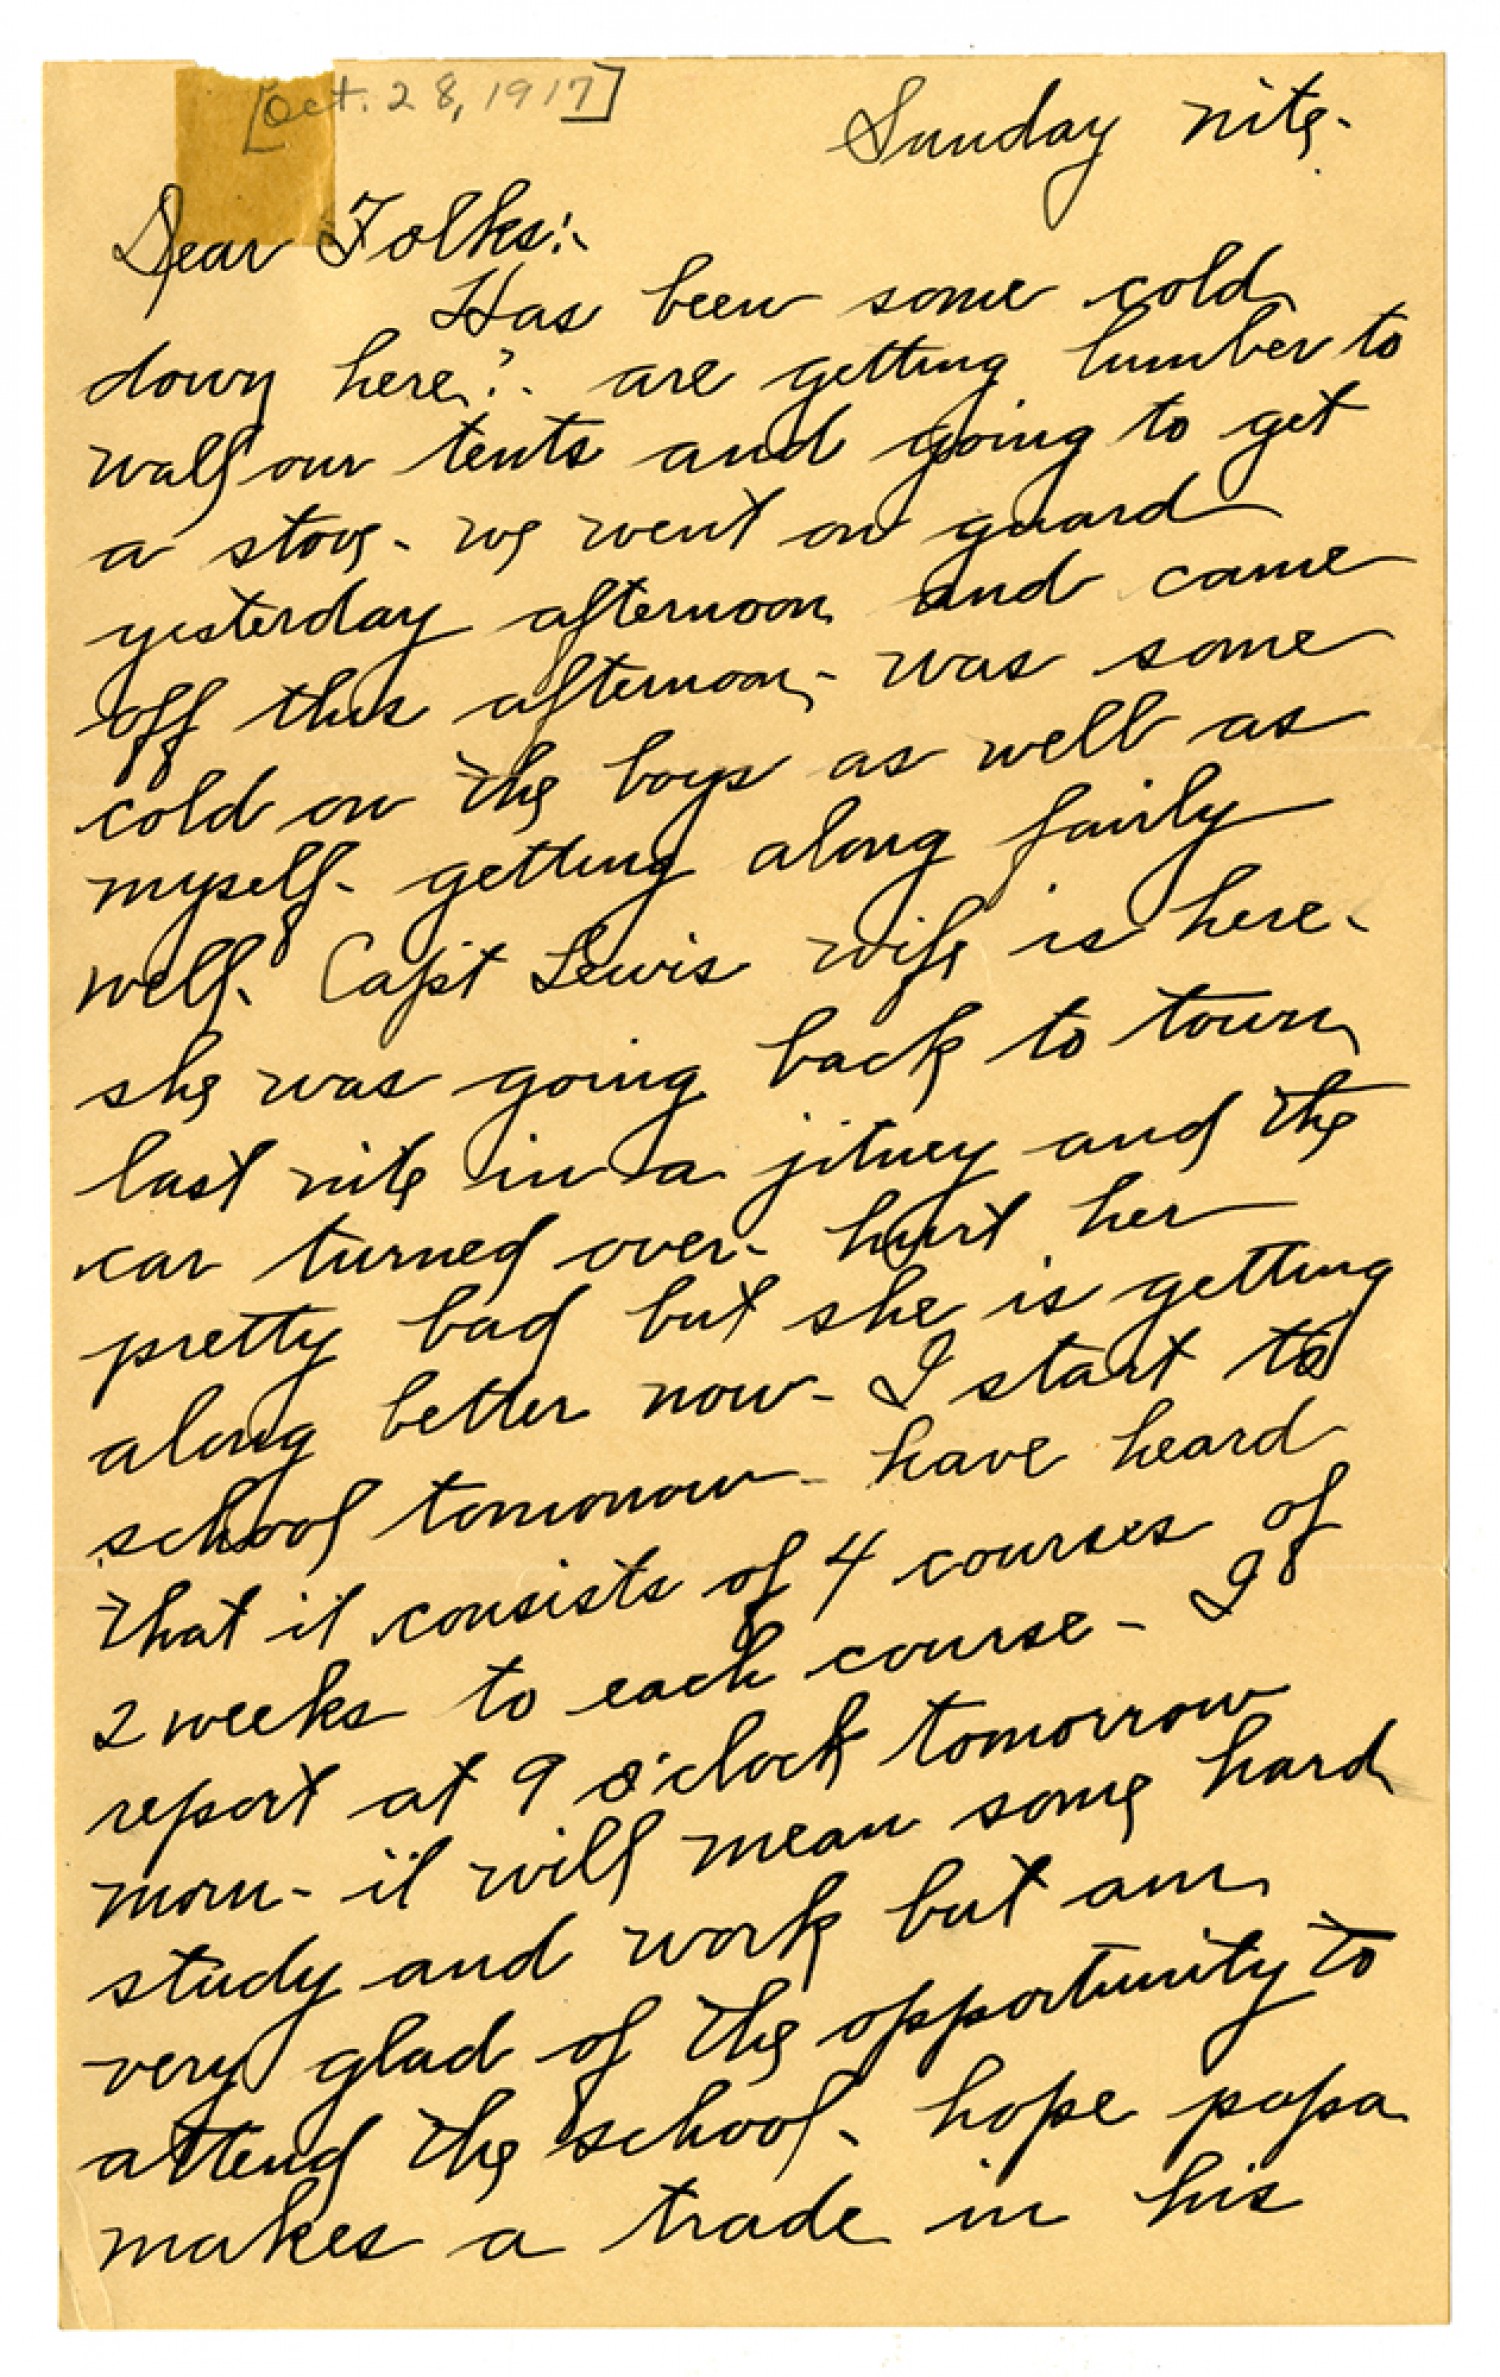 [Oct. 28, 1917]
Sunday nite.
Dear Folks:-
Has been some cold
down here?. are getting lumber to
wall our tents and going to get
a stove. we went on guard
yesterday afternoon and came
off this afternoon - was some
cold on the boys as well as
myself - getting along fairly
well. Capt Lewis wife is here -
she was going back to town
last nite in a jitney and the
car turned over - hurt her
pretty bad but she is getting
along better now - I start to
school tomorrow - have heard
that it consists of 4 courses of
2 weeks to each course - I
report at 9 o'clock tomorrow
morn - it will mean some hard
study and work but am
very glad of the opportunity to
attend the school - hope papa
makes a trade in his